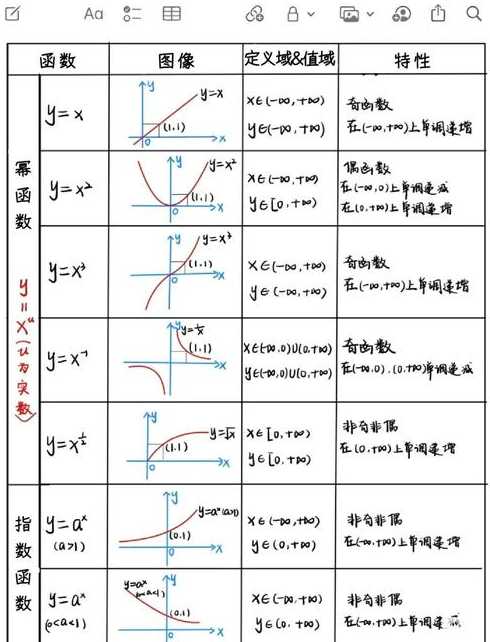 Aa
函数 图像 定义域&值域 特性
幂函数
y=x^u (u为实数)
y=x
y
y=x
(1,1)
0
x
x∈(-∞,+∞)
y∈(-∞,+∞)
奇函数
在(-∞,+∞)上单调递增
y=x²
y
y=x²
(1,1)
0
x
x∈(-∞,+∞)
y∈[0,+∞)
偶函数
在(-∞,0)上单调递减
在(0,+∞)上单调递增
y=x³
y
y=x³
(1,1)
0
x
x∈(-∞,+∞)
y∈(-∞,+∞)
奇函数
在(-∞,+∞)上单调递增
y=x⁻¹
y
y=1/x
(1,1)
x
x∈(-∞,0)∪(0,+∞)
y∈(-∞,0)∪(0,+∞)
奇函数
在(-∞,0),(0,+∞)单调递减
y=x^½
y
y=√x
(1,1)
0
x
x∈[0,+∞)
y∈[0,+∞)
非奇非偶
在(0,+∞)上单调递增
指数函数
y=aˣ
(a>1)
y
y=aˣ(a>1)
(0,1)
0
x
x∈(-∞,+∞)
y∈(0,+∞)
非奇非偶
在(-∞,+∞)上单调递增
y=aˣ
(0<a<1)
y=aˣ
(0<a<1)
y
(0,1)
0
x
x∈(-∞,+∞)
y∈(0,+∞)
非奇非偶
在(-∞,+∞)上单调递减